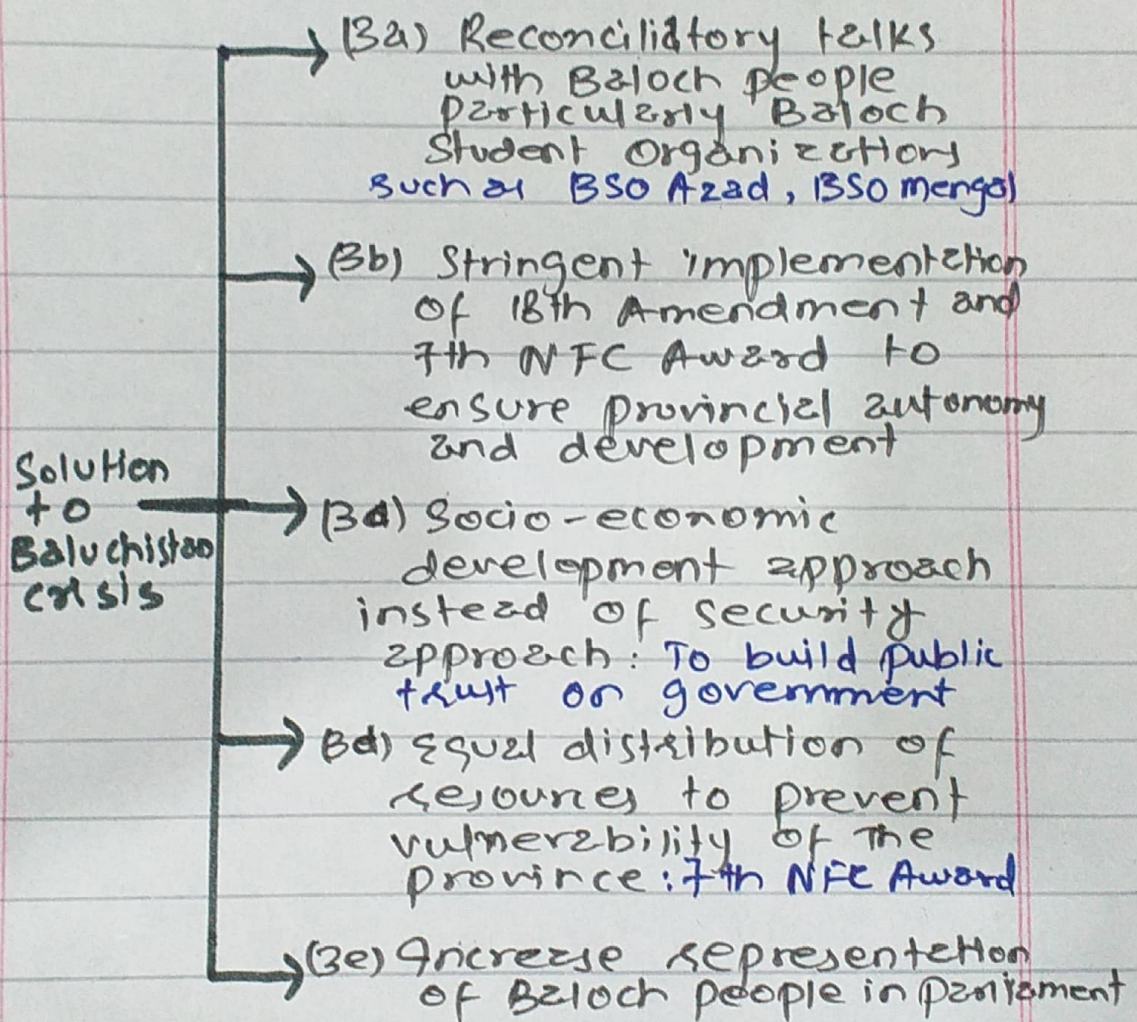 (3a) Reconciliatory talks
with Baloch people
particularly Baloch
Student Organizations
such as BSO Azad, BSO mengal
(3b) Stringent implementation
of 18th Amendment and
7th NFC Award to
ensure provincial autonomy
and development
Solution
to
Baluchistan
crisis
(3d) Socio-economic
development approach
instead of security
approach: To build public
trust on government
3d) Equal distribution of
resources to prevent
vulnerability of the
province: 7th NFC Award
(3e) Increase representation
of Baloch people in parliament